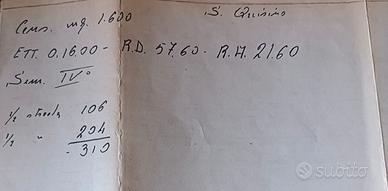 Cens. mq. 1.600
S. Quirino
ETT. 0.16.00 - R.D. 57.60 - R.A. 21.60
Sem. IV°
1/2 strada 106
1/2 " 204
- 310
subito